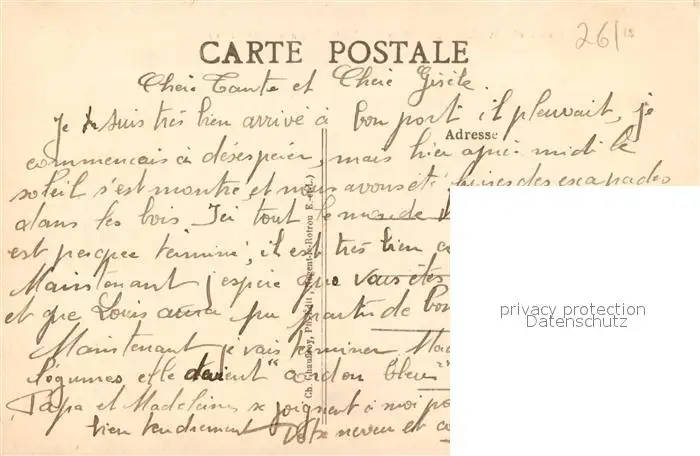 26/15
CARTE POSTALE
Chère Tante et Chère Gisèle.
Je suis très bien arrivé à bon port il pleuvait, je
Adresse
commencais à désespérer, mais hier après midi le
soleil s'est montré, et nous avons été faires des escapades
dans les bois Ici tout le monde
est presque terminé, il est très bien
Maintenant j'espère que vous êtes
et que Louis aura pu partir de bon
Maintenant je vais terminer Mad
légumes, elle devient "cordon bleu"
Papa et Madeleine se joignent à moi po
bien tendrement Votre neveu et c
Ch. Chaufroy, Phot.-Edit., Nogent-le-Rotrou E.-et-L.)
privacy protection
Datenschutz